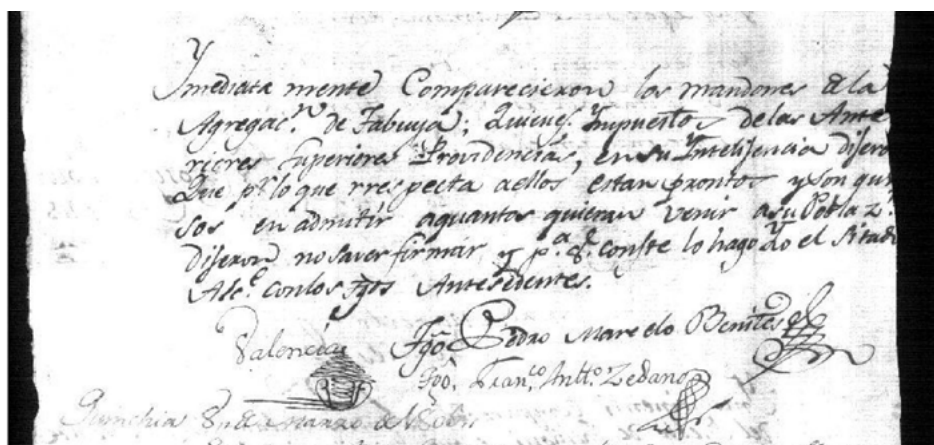 Ymediata mente Comparecieron los mandones de la
Agregac.n de Tabuya; Quienes Impuestos de las Ante
riores Superiores Providencias, en su Intelijencia dijero
Que pr lo que rrespecta a ellos estan prontos y son gus
sos en admitir aquantos quieran venir asu Poblaz.n
dijeron no saver firmar, y p.a q.e conste lo hago Yo el Sitado
Alc.e con los tgos Antesedentes.
Valencia tgo Pedro Marselo Benites
tgo. Fran.co Antt.o Zedano
Marzo